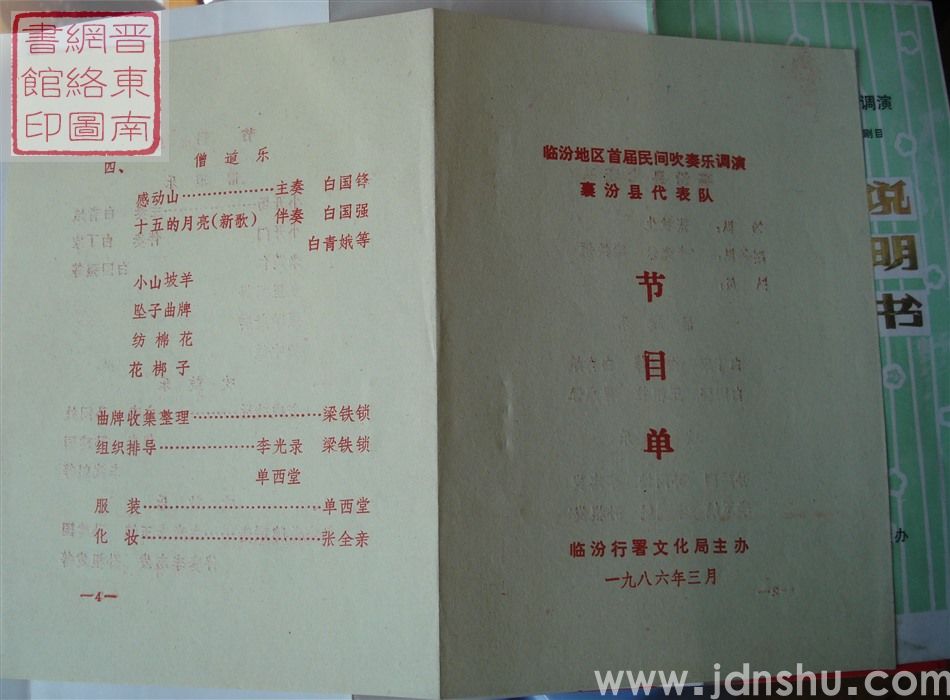 晋東南
網絡圖
書館印
四、 僧道乐
感动山……………………主奏 白国锋
十五的月亮(新歌) 伴奏 白国强
白青娥等
小山坡羊
坠子曲牌
纺棉花
花梆子
曲牌收集整理……………………梁铁锁
组织排导………………李光录 梁铁锁
单西堂
服 装……………………………单西堂
化 妆……………………………张全亲
—4—
临汾地区首届民间吹奏乐调演
襄汾县代表队
节
目
单
临汾行署文化局主办
一九八六年三月
调演
剧目
说
明
书
办
www.jdnshu.com